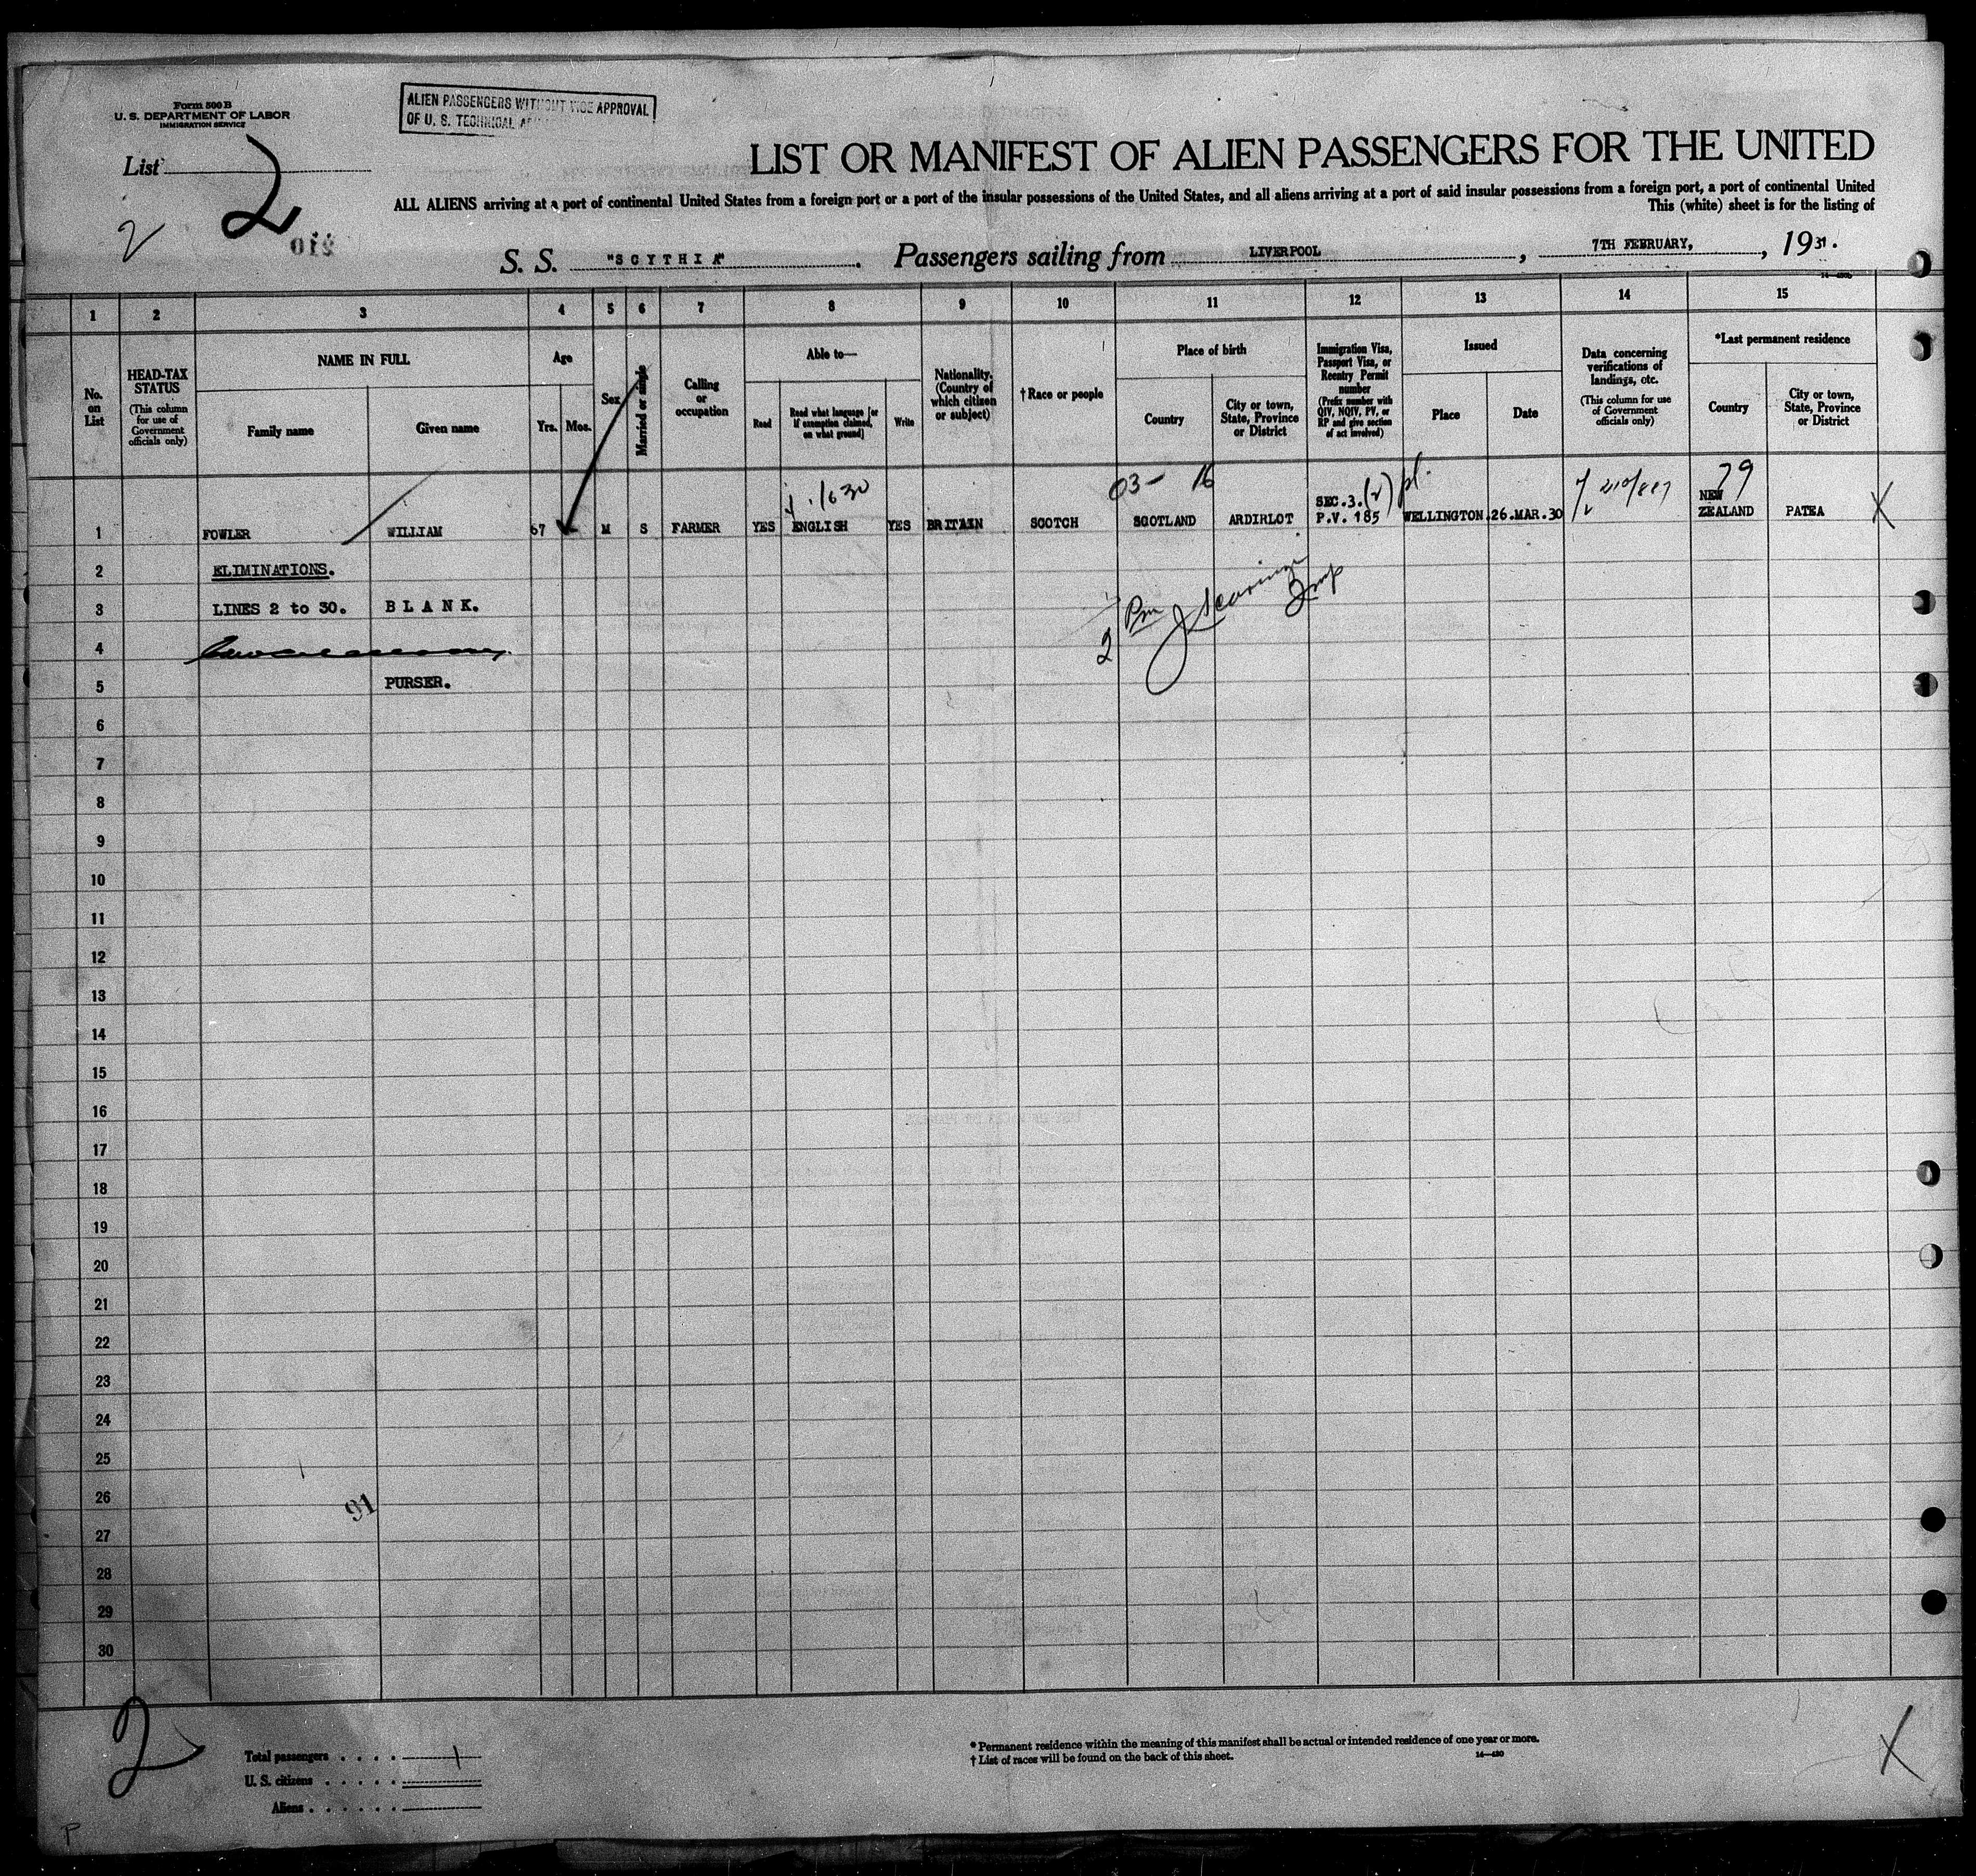 Form 500 B
U. S. DEPARTMENT OF LABOR
IMMIGRATION SERVICE
ALIEN PASSENGERS WITHOUT VISE APPROVAL
OF U. S. TECHNICAL
List
2
2
LIST OR MANIFEST OF ALIEN PASSENGERS FOR THE UNITED
ALL ALIENS arriving at a port of continental United States from a foreign port or a port of the insular possessions of the United States, and all aliens arriving at a port of said insular possessions from a foreign port, a port of continental United
This (white) sheet is for the listing of
S. S. "SCYTHIA". Passengers sailing from LIVERPOOL, 7TH FEBRUARY, , 1931.
1 2 3 4 5 6 7 8 9 10 11 12 13 14 15
No. on List
HEAD-TAX STATUS
(This column for use of Government officials only)
NAME IN FULL
Family name
Given name
Age
Yrs. Mos.
Sex
Married or single
Calling or occupation
Able to—
Read
Read what language [or if exemption claimed, on what ground]
Write
Nationality. (Country of which citizen or subject)
† Race or people
Place of birth
Country
City or town, State, Province or District
Immigration Visa, Passport Visa, or Reentry Permit number
(Prefix number with QIV, NQIV, PV, or RP and give section of act involved)
Issued
Place
Date
Data concerning verifications of landings, etc.
(This column for use of Government officials only)
*Last permanent residence
Country
City or town, State, Province or District
03— 16 79
SEC.3.(2) NEW
1 FOWLER WILLIAM 67 M S FARMER YES ENGLISH YES BRITAIN SCOTCH SCOTLAND ARDIRLOT P.V. 185 WELLINGTON 26.MAR.30 ZEALAND PATEA X
2 ELIMINATIONS.
3 LINES 2 to 30. B L A N K.
4
5 PURSER.
6
7
8
9
10
11
12
13
14
15
16
17
18
19
20
21
22
23
24
25
26
91
27
28
29
30
2
Total passengers . . . . 1
U. S. citizens . . . . .
Aliens . . . . . .
* Permanent residence within the meaning of this manifest shall be actual or intended residence of one year or more.
† List of races will be found on the back of this sheet.
14—430
X
P